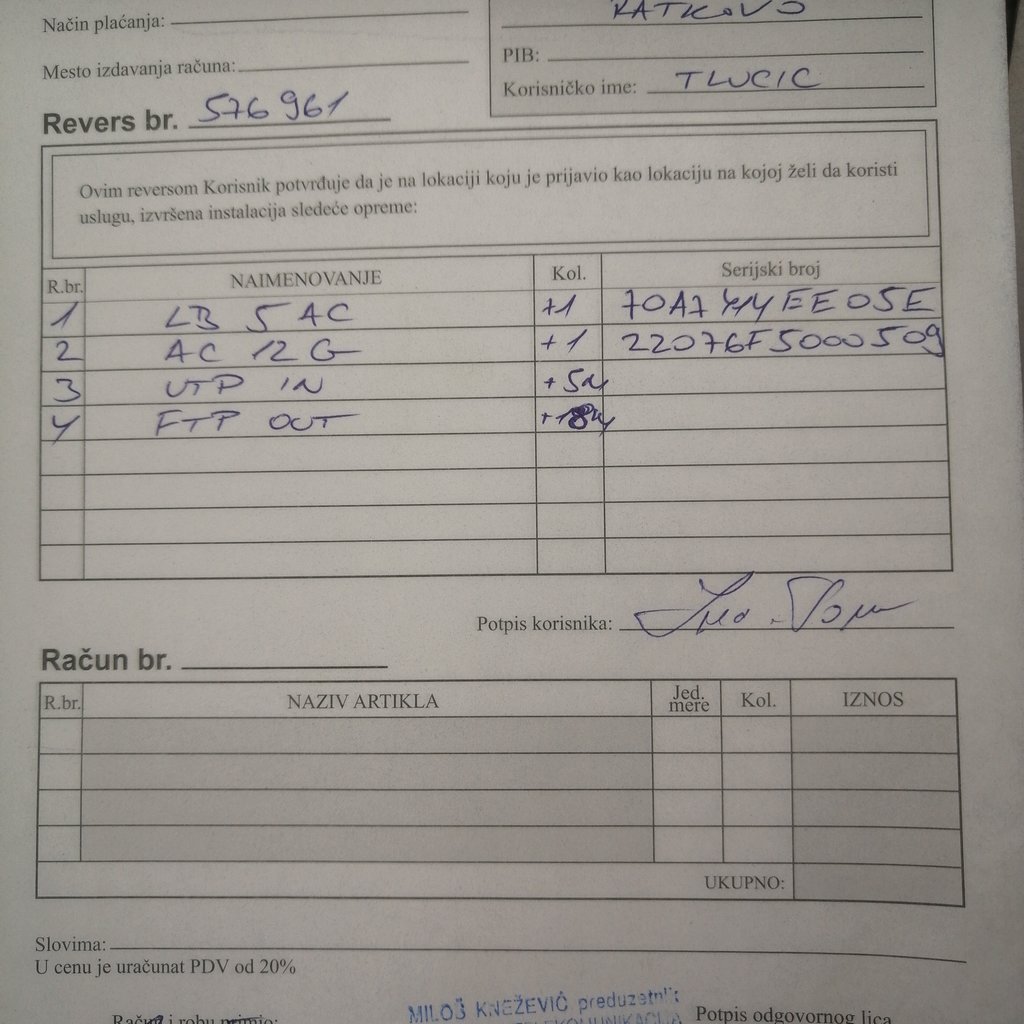 RATKOVO
Način plaćanja:
PIB:
Mesto izdavanja računa:
Korisničko ime: TLUCIC
Revers br. 576961
Ovim reversom Korisnik potvrđuje da je na lokaciji koju je prijavio kao lokaciju na kojoj želi da koristi
uslugu, izvršena instalacija sledeće opreme:
R.br. NAIMENOVANJE Kol. Serijski broj
1 LB 5 AC +1 70A7414EE05E
2 AC 12 G +1 22076F5000509
3 UTP IN +5M
4 FTP OUT +18M
Potpis korisnika:
Račun br.
R.br. NAZIV ARTIKLA Jed. mere Kol. IZNOS
UKUPNO:
Slovima:
U cenu je uračunat PDV od 20%
MILOŠ KNEŽEVIĆ preduzetnik
Račun i robu primio: TELEKOMUNIKACIJA Potpis odgovornog lica